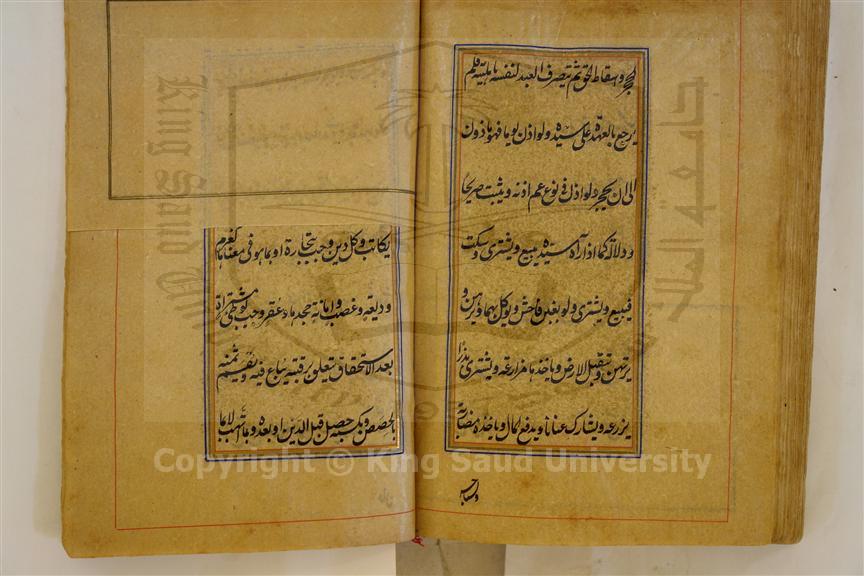 الحجر واسقاط الحق ثم يتصرف العبد لنفسه باهليته فلم
يرجع بالعهدة على سيده ولو اذن يوما فهو ماذون
الى ان يحجر ولو اذن فى نوع عم اذنه ويثبت صريحا
ودلالة كما اذا رآه سيده يبيع ويشترى وسكت
فيبيع ويشترى ولو بغبن فاحش ويوكل بهما ويرهن و
يرتهن ويتقبل الارض وياخذها مزارعة ويشترى بذرا
يزرعه ويشارك عنانا ويدفع المال وياخذه مضاربة
يكاتب وكل دين وجب بتجارة او بما هو فى معناها كغرم
وديعة وغصب وامانة جحدها وعقر وجب بوطئ مشتراة
بعد الاستحقاق يتعلق برقبته يباع فيه ويقسم ثمنه
بالحصص وبكسبه حصل قبل الدين او بعده وبما اتهب لا بما
Copyright © King Saud University
King Saud University